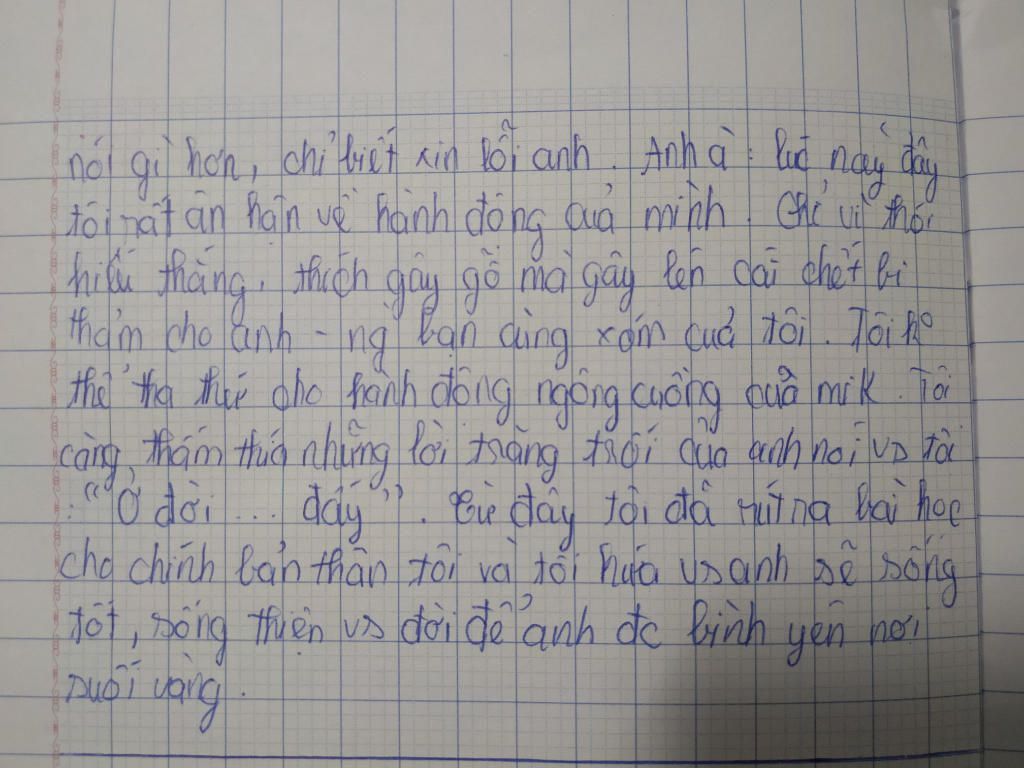 nói gì hơn, chỉ biết xin lỗi anh. Anh à: lúc này đây
tôi rất ân hận về hành động của mình. Chỉ vì thói
hiếu thắng, thích gây gổ mà gây lên cái chết bi
thảm cho anh - ng bạn cùng xóm của tôi. Tôi ko
thể tha thứ cho hành động ngông cuồng của mik. Tôi
càng thấm thía những lời trăng trối của anh nói vs tôi
: "Ở đời ... đấy". Từ đây tôi đã rút ra bài học
cho chính bản thân tôi và tôi hứa vs anh sẽ sống
tốt, sống thiện vs đời để anh đc bình yên nơi
suối vàng.